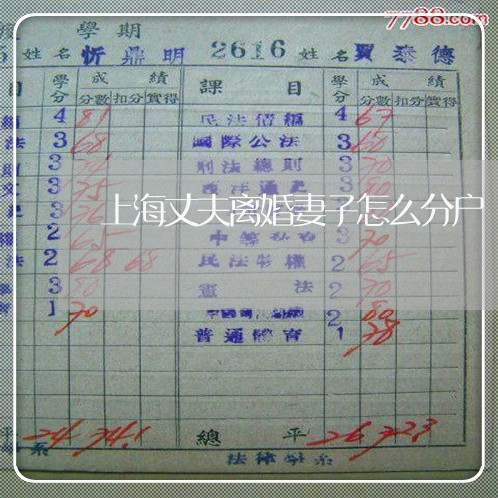 7788.com
學期
5 姓名 忻鼎明 2616 姓名 賈泰德
目 學分 成績 課目 學分 成績
分數 扣分 實得 分數 扣分 實得
4 81 民法債編 4 67
法 3 68 國際公法 3 60
3 刑法總則 3 70
3 75 3 80
3 76
上海丈夫离婚妻子怎么分户
2 65 3 70
法 2 68 68 民法物權 2 65
3 80 憲法 2 70
1 70 2 80
普通體育 1 78
平 24 74.1 總平 26 72.3
系 法律學系